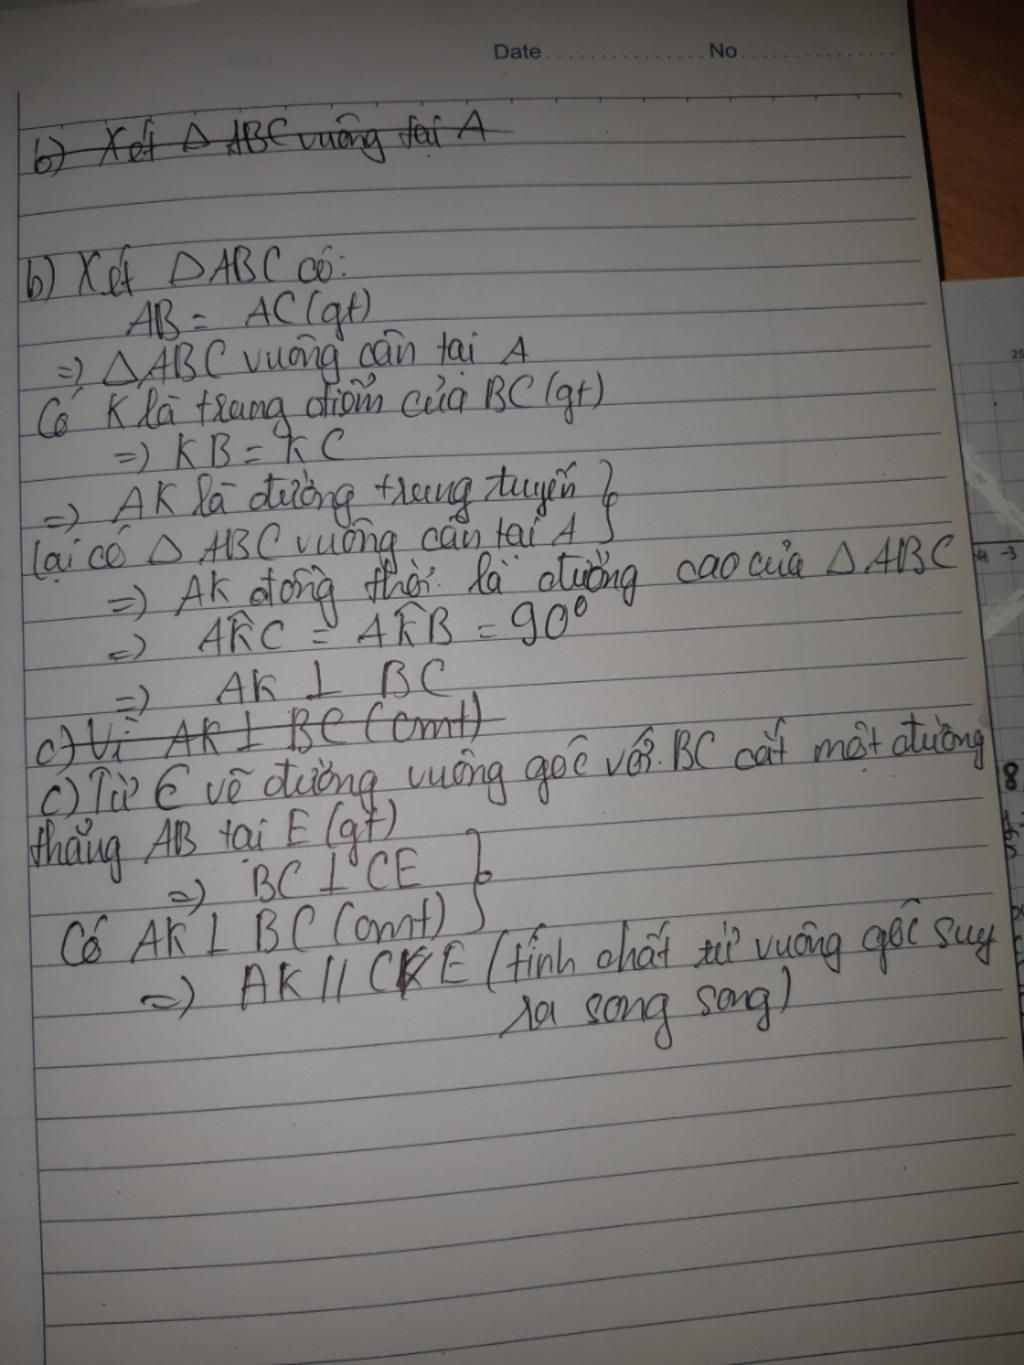 Date No
b) Xét Δ ABC vuông tại A
b) Xét ΔABC có:
AB = AC (gt)
=) ΔABC vuông cân tại A
Có K là trung điểm của BC (gt)
=) KB = KC
=) AK là đường trung tuyến }
lại có Δ ABC vuông cân tại A
=) AK đồng thời là đường cao của ΔABC
=) AK̂C = AK̂B = 90⁰
=) AK ⊥ BC
c) Vì AK ⊥ BC (cmt)
c) Từ C vẽ đường vuông góc với BC cắt một đường
thẳng AB tại E (gt)
=) BC ⊥ CE }
Có AK ⊥ BC (cmt)
=) AK // CE (tính chất từ vuông góc suy
ra song song)
25
8